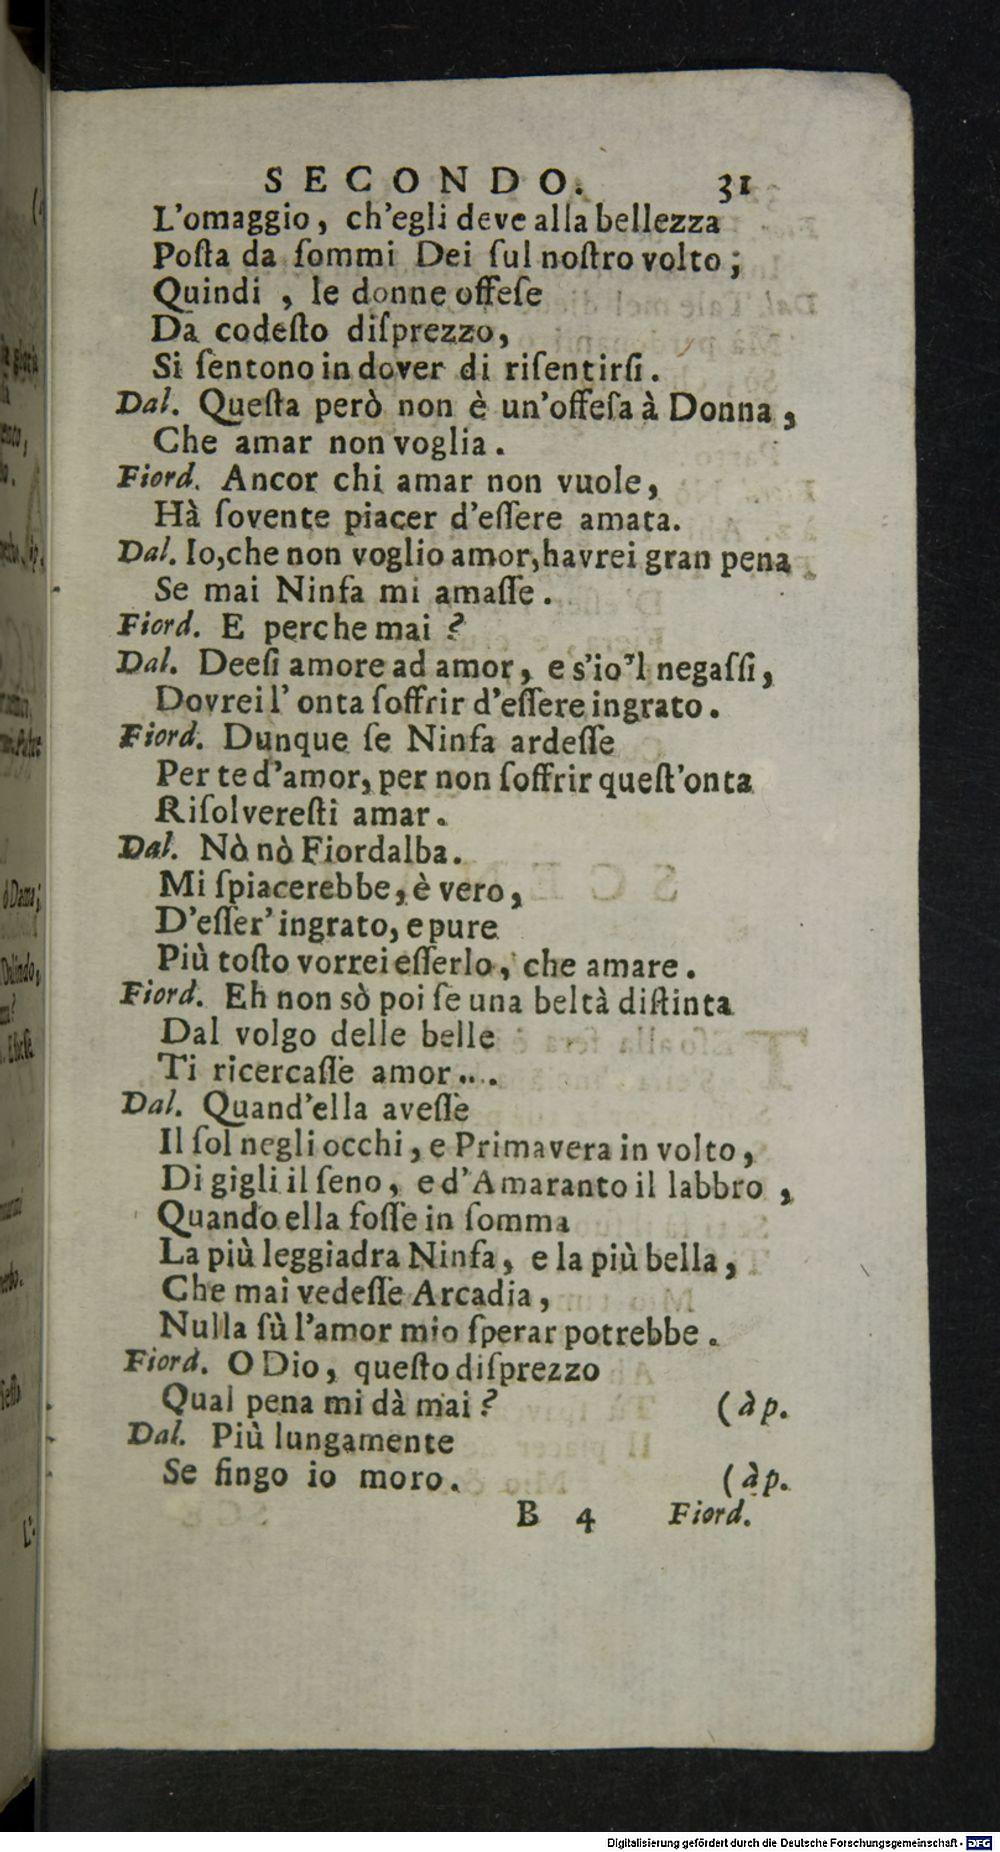 SECONDO. 31
L'omaggio, ch'egli deve alla bellezza
Poſta da ſommi Dei ſul noſtro volto;
Quindi, le donne offeſe
Da codeſto diſprezzo,
Si ſentono in dover di riſentirſi.
Dal. Queſta però non è un'offeſa à Donna,
Che amar non voglia.
Fiord. Ancor chi amar non vuole,
Hà ſovente piacer d'eſſere amata.
Dal. Io, che non voglio amor, havrei gran pena
Se mai Ninfa mi amaſſe.
Fiord. E perche mai?
Dal. Deeſi amore ad amor, e s'io'l negaſſi,
Dovrei l'onta ſoffrir d'eſſere ingrato.
Fiord. Dunque ſe Ninfa ardeſſe
Per te d'amor, per non ſoffrir queſt'onta
Riſolvereſti amar.
Dal. Nò nò Fiordalba.
Mi ſpiacerebbe, è vero,
D'eſſer' ingrato, e pure
Più toſto vorrei eſſerlo, che amare.
Fiord. Eh non sò poi ſe una beltà diſtinta
Dal volgo delle belle
Ti ricercaſſe amor....
Dal. Quand'ella aveſſe
Il ſol negli occhi, e Primavera in volto,
Di gigli il ſeno, e d'Amaranto il labbro,
Quando ella foſſe in ſomma
La più leggiadra Ninfa, e la più bella,
Che mai vedeſſe Arcadia,
Nulla ſù l'amor mio ſperar potrebbe.
Fiord. O Dio, queſto diſprezzo
Qual pena mi dà mai? (àp.
Dal. Più lungamente
Se fingo io moro. (àp.
B 4 Fiord.
Digitalisierung gefördert durch die Deutsche Forschungsgemeinschaft - DFG